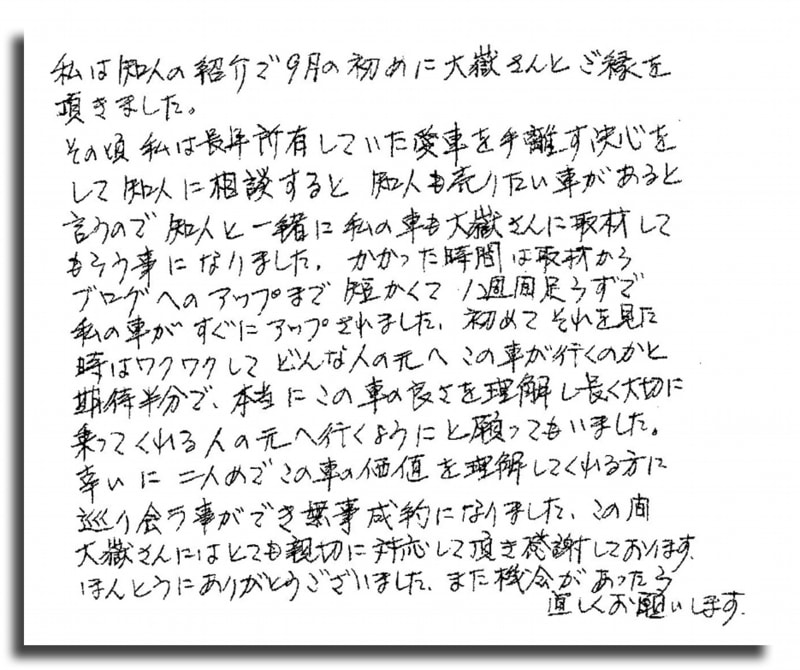 私は知人の紹介で9月の初めに大嶽さんとご縁を
頂きました。
その頃私は長年所有していた愛車を手離す決心を
して知人に相談すると 知人も売りたい車があると
言うので知人と一緒に私の車も大嶽さんに取材して
もらう事になりました。かかった時間は取材から
ブログへのアップまで短かくて1週間足らずで
私の車がすぐにアップされました。初めてそれを見た
時はワクワクしてどんな人の元へこの車が行くのかと
期待半分で、本当にこの車の良さを理解し長く大切に
乗ってくれる人の元へ行くようにと願ってもいました。
幸いに二人めでこの車の価値を理解してくれる方に
巡り会う事ができ無事成約になりました。この間
大嶽さんにはとても親切に対応して頂き感謝しております。
ほんとうにありがとうございました。また機会があったら
宜しくお願いします。